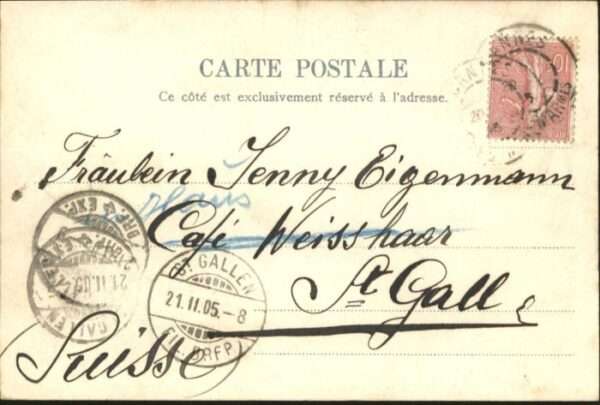 CARTE POSTALE
Ce côté est exclusivement réservé à l'adresse.
10
Fräulein Jenny Eigenmann
Café Weisshaar
St. Gall
Suisse
ST. GALLEN
21.II.05.-8
BRF. & EXP.
21.II.05